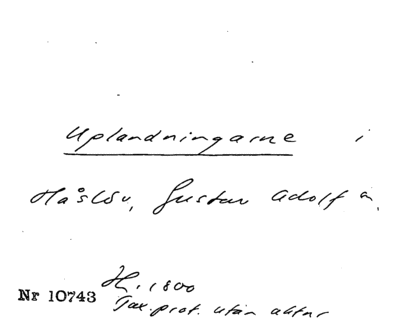 Uplandningarne i
Håslöv, Gustav Adolf a.
H. 1800
Nr 10743
Tax. prot. utan aktnr